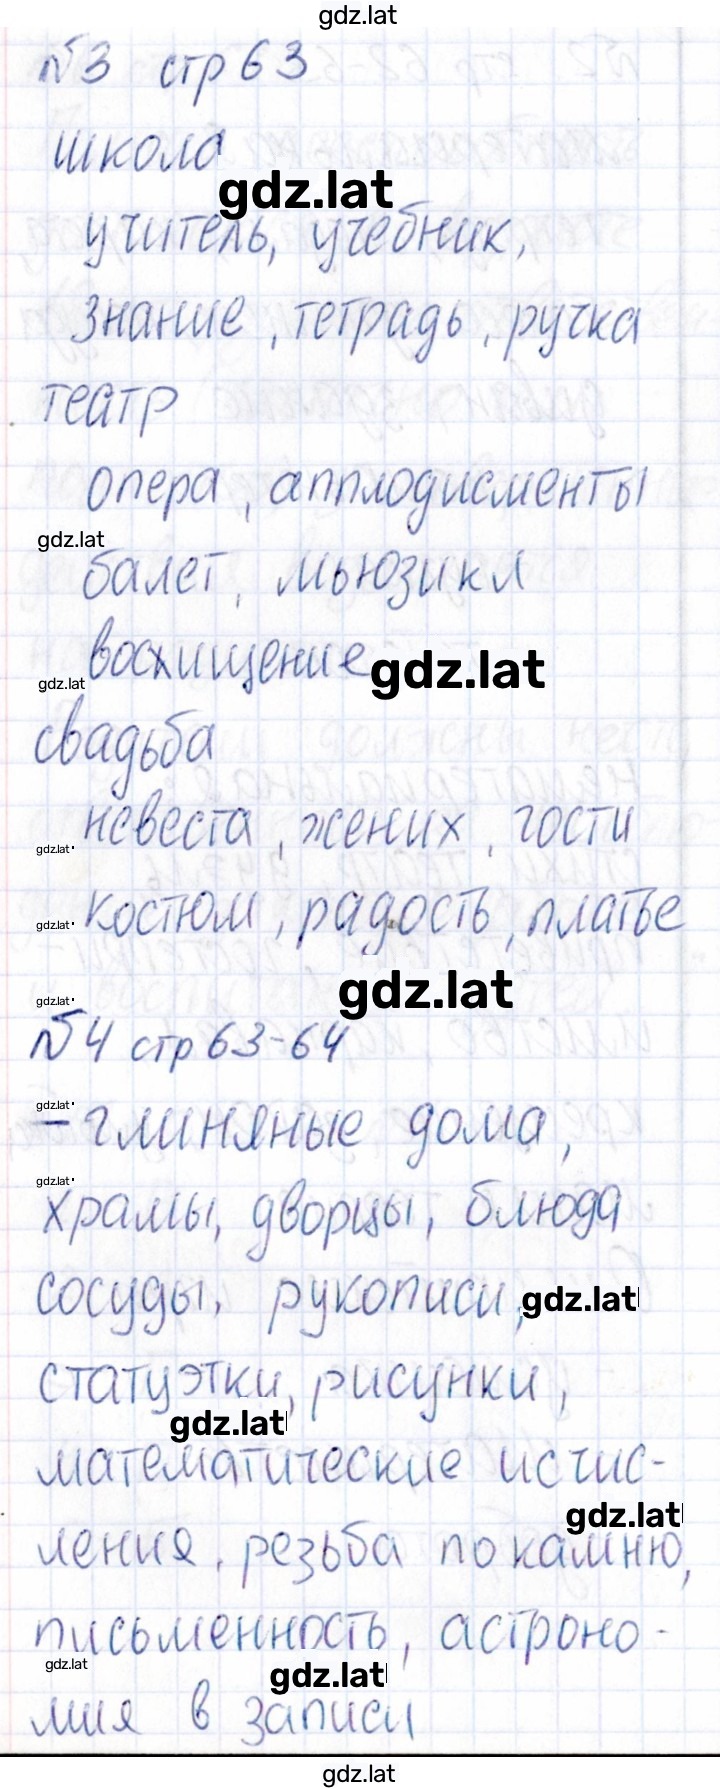 gdz.lat
№3 стр 63
школа
gdz.lat
учитель, учебник,
знание, тетрадь, ручка
театр
опера, апплодисменты
gdz.lat
балет, мьюзикл
восхищение gdz.lat
gdz.lat
свадьба
невеста, жених, гости
gdz.lat
костюм, радость, платье
gdz.lat
gdz.lat
gdz.lat
№4 стр 63-64
gdz.lat
- глиняные дома,
gdz.lat
храмы, дворцы, блюда
сосуды, рукописи, gdz.lat
статуэтки, рисунки,
gdz.lat
математические исчис-
gdz.lat
ления, резьба по камню,
письменность, астроно-
gdz.lat
gdz.lat
мия в записи
gdz.lat